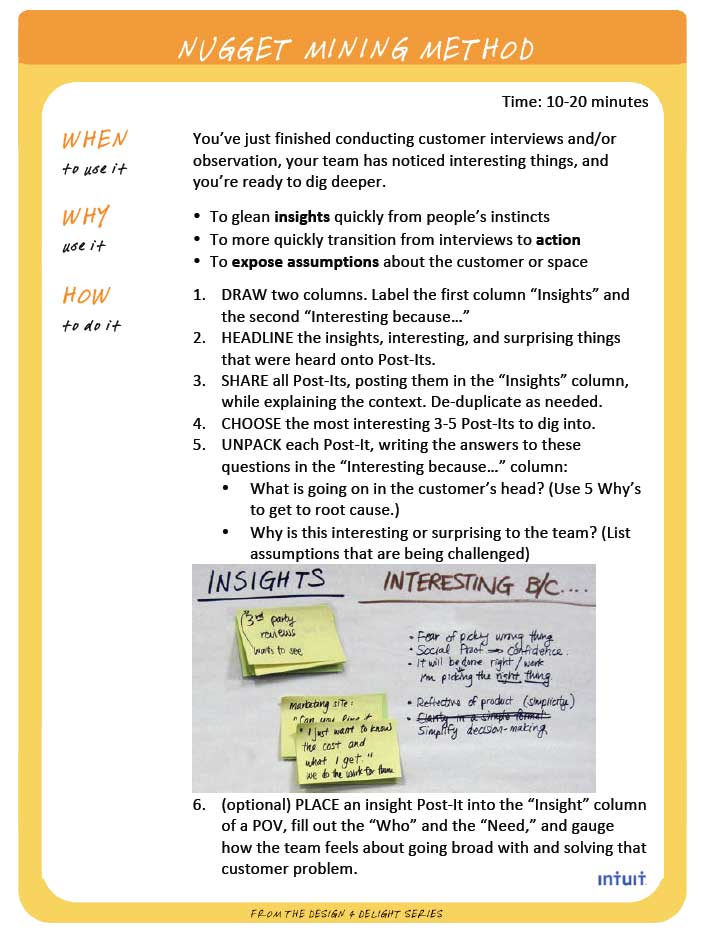 NUGGET MINING METHOD
Time: 10-20 minutes
WHEN
to use it
You’ve just finished conducting customer interviews and/or
observation, your team has noticed interesting things, and
you’re ready to dig deeper.
WHY
use it
• To glean insights quickly from people’s instincts
• To more quickly transition from interviews to action
• To expose assumptions about the customer or space
HOW
to do it
1. DRAW two columns. Label the first column “Insights” and
the second “Interesting because…”
2. HEADLINE the insights, interesting, and surprising things
that were heard onto Post-Its.
3. SHARE all Post-Its, posting them in the “Insights” column,
while explaining the context. De-duplicate as needed.
4. CHOOSE the most interesting 3-5 Post-Its to dig into.
5. UNPACK each Post-It, writing the answers to these
questions in the “Interesting because…” column:
• What is going on in the customer’s head? (Use 5 Why’s
to get to root cause.)
• Why is this interesting or surprising to the team? (List
assumptions that are being challenged)
INSIGHTS
3rd party
reviews
wants to see
Marketing site:
"Can you
"I just want to know
the cost and
what I get."
we do the work for them
INTERESTING B/C....
• Fear of picky wrong thing
• Social Proof → confidence.
• It will be done right/work
I'm picking the right thing.
• Reflective of product (simplicity)
• Clarity in a simple format
Simplify decision-making
6. (optional) PLACE an insight Post-It into the “Insight” column
of a POV, fill out the “Who” and the “Need,” and gauge
how the team feels about going broad with and solving that
customer problem.
intuit
FROM THE DESIGN 4 DELIGHT SERIES